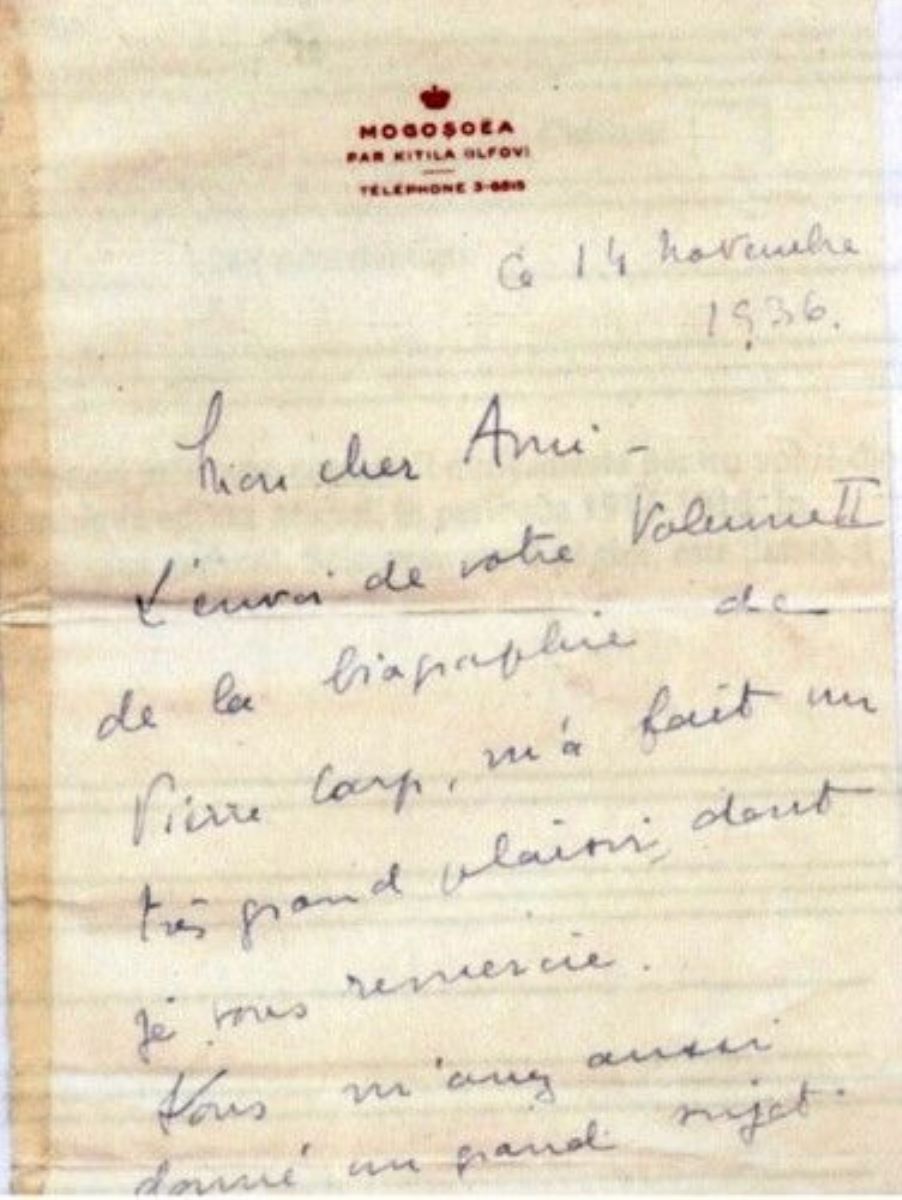 MOGOȘOËA
PAR KITILA (ILFOV)
TÉLÉPHONE 3-6815
Ce 14 novembre
1936.
Mon cher Ami -
L'envoi de votre Volume II
de la biographie de
Pierre Carp, m'a fait un
très grand plaisir, dont
je vous remercie.
Vous m'avez aussi
donné un grand sujet